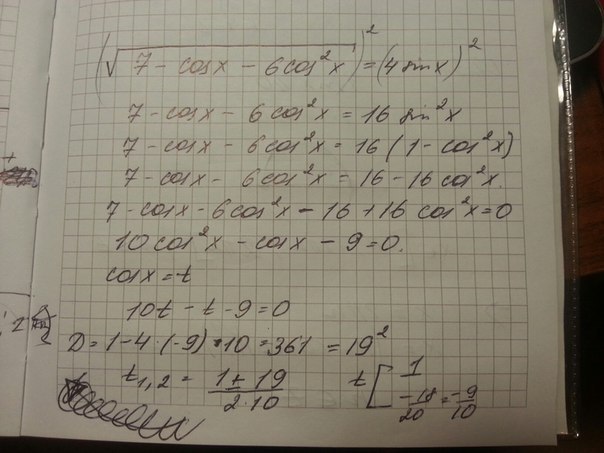 (√(7 - cosx - 6cos²x))² = (4sinx)²
7 - cosx - 6cos²x = 16 sin²x
7 - cosx - 6cos²x = 16(1 - cos²x)
7 - cosx - 6cos²x = 16 - 16cos²x.
7 - cosx - 6cos²x - 16 + 16 cos²x = 0
10cos²x - cosx - 9 = 0.
cosx = t
10t - t - 9 = 0
D = 1 - 4·(-9)·10 = 361 = 19²
t1,2 = (1 ± 19)/(2·10) t [ 1
-18/20 = -9/10